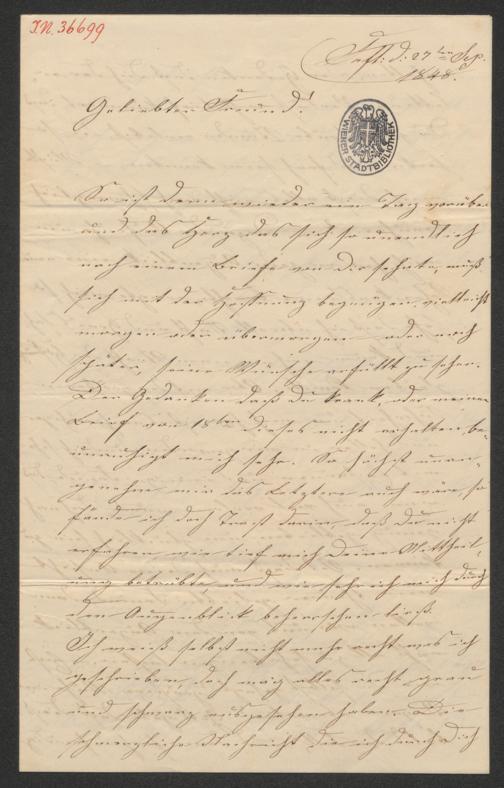 I.N. 36699
Pest. d. 27ten Sep.
1848.
Geliebter Freund!
WIENER STADTBIBLIOTHEK
So ist denn wieder ein Tag vorüber
und das Herz das sich so unendlich
nach einem Briefe von Dir sehnte, muß
sich mit der Hoffnung begnügen vielleicht
morgen oder übermorgen oder noch
später, seine Wünsche erfüllt zu sehen.
Der Gedanken daß Du krank, oder meinen
Brief von 18ten dieses nicht erhalten be-
unruhigt mich sehr. So höchst unan-
genehm mir das Letztere auch wäre, so
fände ich doch Trost darin, daß Du nicht
erfahren wie tief mich Deine Mittheil-
ung betrübte, und wie sehr ich mich durch
den Augenblick beherrschen ließ.
Ich weiß selbst nicht mehr recht was ich
geschrieben, doch mag alles recht grau
und schwarz ausgesehen haben. Die
schmerzliche Nachricht die ich durch Dich